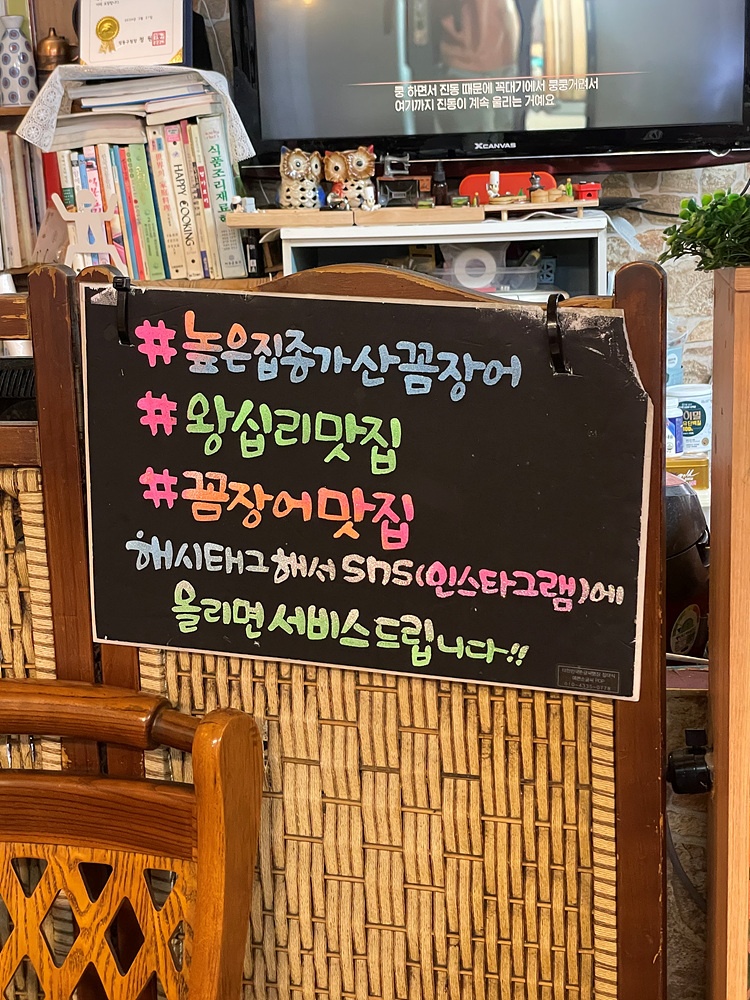 쿵 하면서 진동 때문에 꼭대기에서 쿵쿵거려서
여기까지 진동이 계속 울리는 거예요
XCANVAS
HAPPY COOKING
식품조리재료학
#높은집종가산꼼장어
#왕십리맛집
#꼼장어맛집
해시태그해서 SNS(인스타그램)에
올리면서비스드립니다!!